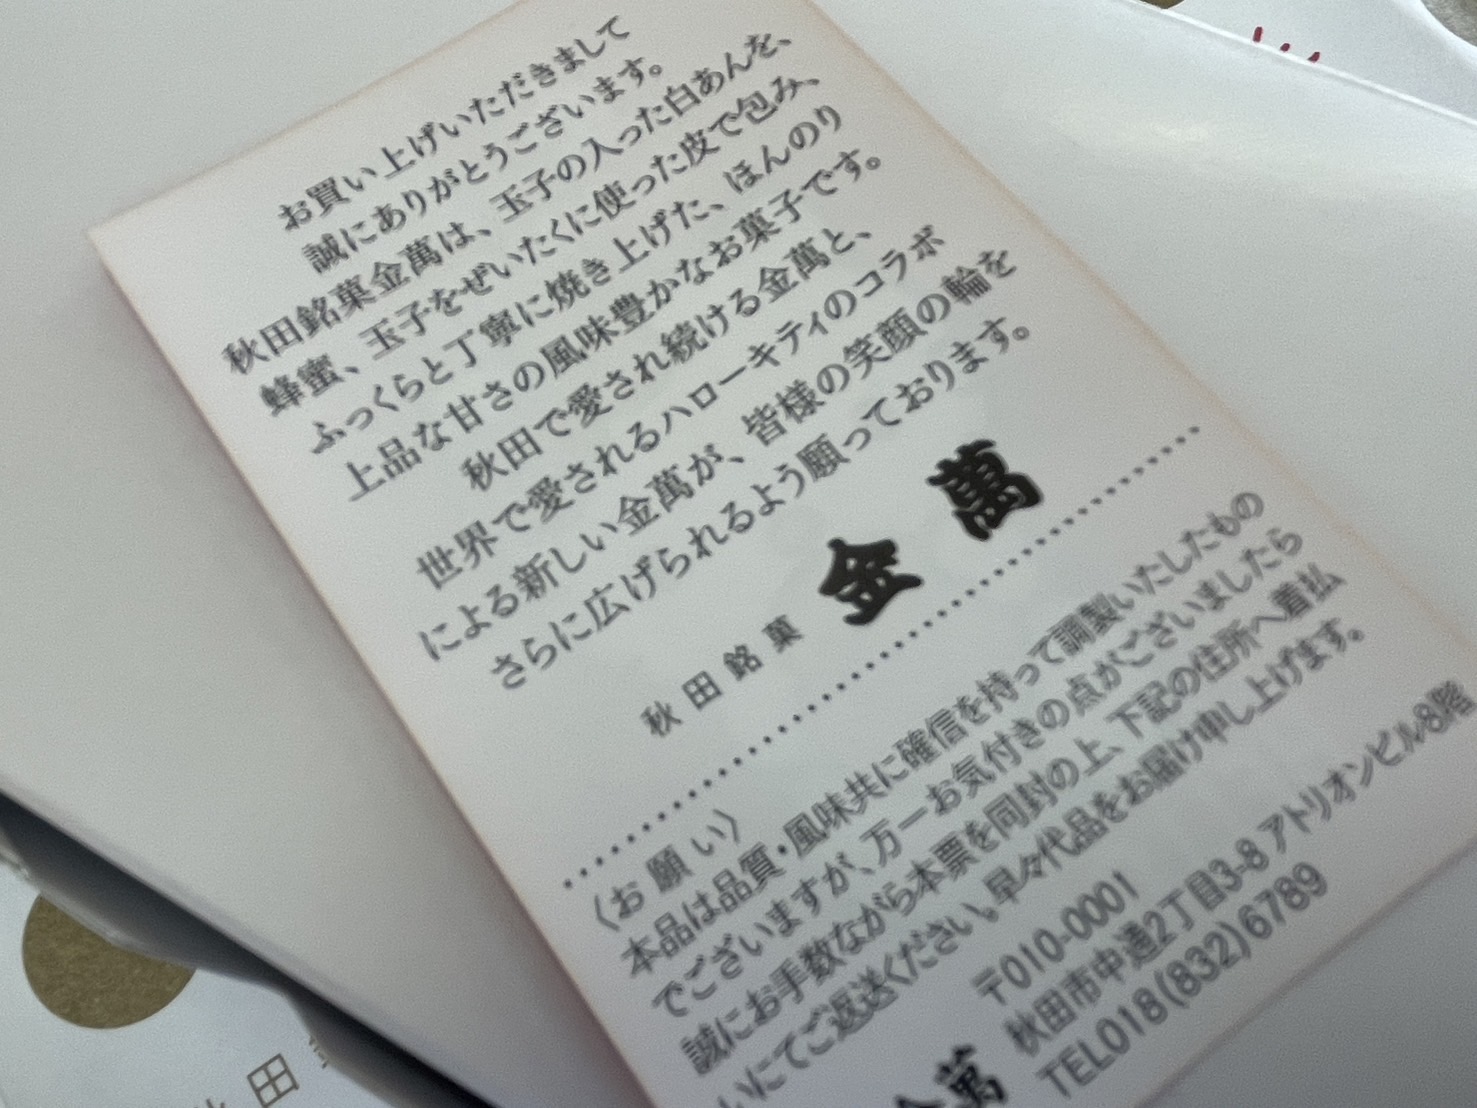 お買い上げいただきまして
誠にありがとうございます。
秋田銘菓金萬は、玉子の入った白あんを、
蜂蜜、玉子をぜいたくに使った皮で包み、
ふっくらと丁寧に焼き上げた、ほんのり
上品な甘さの風味豊かなお菓子です。
秋田で愛され続ける金萬と、
世界で愛されるハローキティのコラボ
による新しい金萬が、皆様の笑顔の輪を
さらに広げられるよう願っております。
秋田銘菓 金萬
〈お願い〉
本品は品質・風味共に確信を持って調製いたしたもの
でございますが、万一お気付きの点がございましたら
誠にお手数ながら本票を同封の上、下記の住所へ着払
いにてご返送ください。早々代品をお届け申し上げます。
〒010-0001
秋田市中通2丁目3-8 アトリオンビル8階
TEL018(832)6789
金萬
田